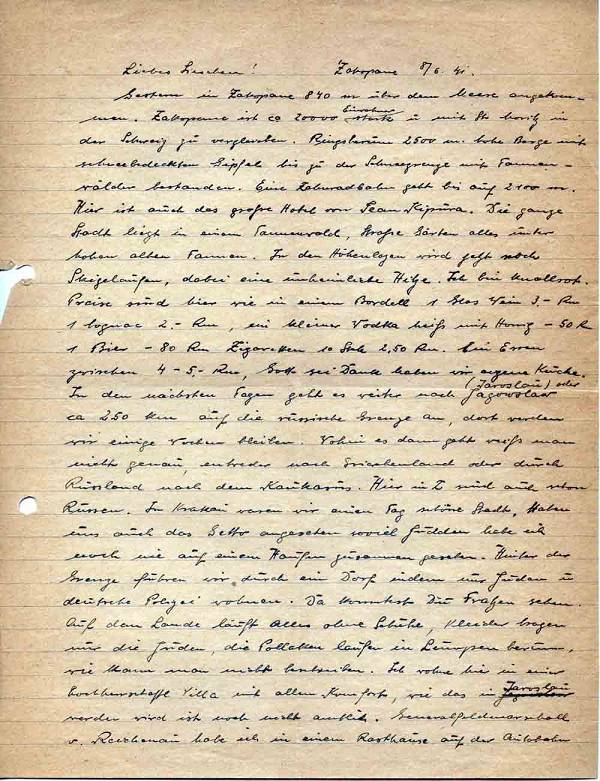 Liebes Lieschen! Zakopane 8/6. 41.
Gestern in Zakopane 840 m über dem Meere angekom-
men. Zakopane ist ca 20000 Einwohner stark u mit St. Moritz in
der Schweiz zu vergleichen. Ringsherum 2500 m. hohe Berge mit
schneebedeckten Gipfel bis zu der Schneegrenze mit Tannen-
wälder bestanden. Eine Zahnradbahn geht bis auf 2100 m.
Hier ist auch das große Hotel von Jean Kipura. Die ganze
Stadt liegt in einem Tannenwald, große Gärten alles unter
hohen alten Tannen. In den Höhenlagen wird jetzt noch
Skigelaufen, dabei eine unheimliche Hitze. Ich bin knallrot.
Preise sind hier wie in einem Bordell 1 Glas Wein 3.- Rm
1 Cognac 2.- Rm, ein kleiner Vodka heiß mit Honig -50 R
1 Bier -80 Rm Zigaretten 10 Stck 2,50 Rm. Ein Essen
zwischen 4-5.- Rm, Gott sei Dank haben wir eigene Küche.
In den nächsten Tagen geht es weiter nach (Jaroslau) oder Jagowslaw
ca 250 km auf die russische Grenze an, dort werden
wir einige Wochen bleiben. Wohin es dann geht weiß man
nicht genau, entweder nach Griechenland oder durch
Russland nach dem Kaukasus. Hier in Z sind auch schon
Russen. In Krakau waren wir einen Tag schöne Stadt, Haben
uns auch das Getto angesehen soviel Judden habe ich
noch nie auf einem Haufen zusammen gesehen. Hinter der
Grenze fuhren wir durch ein Dorf indem nur Juden u
deutsche Polizei wohnen. Da konntest Du Fratzen sehen.
Auf dem Lande läuft alles ohne Schuhe, Kleider tragen
nur die Juden, die Pollaken laufen in Lumpen herum,
wie kann man nicht beschreiben. Ich wohne hier in einer
hochherschaftl Villa mit allen Komforts, wie das in Jaroslau
werden wird ist noch nicht amtlich. Generalfeldmarschall
v. Reichenau habe ich in einem Rasthause auf der Autobahn